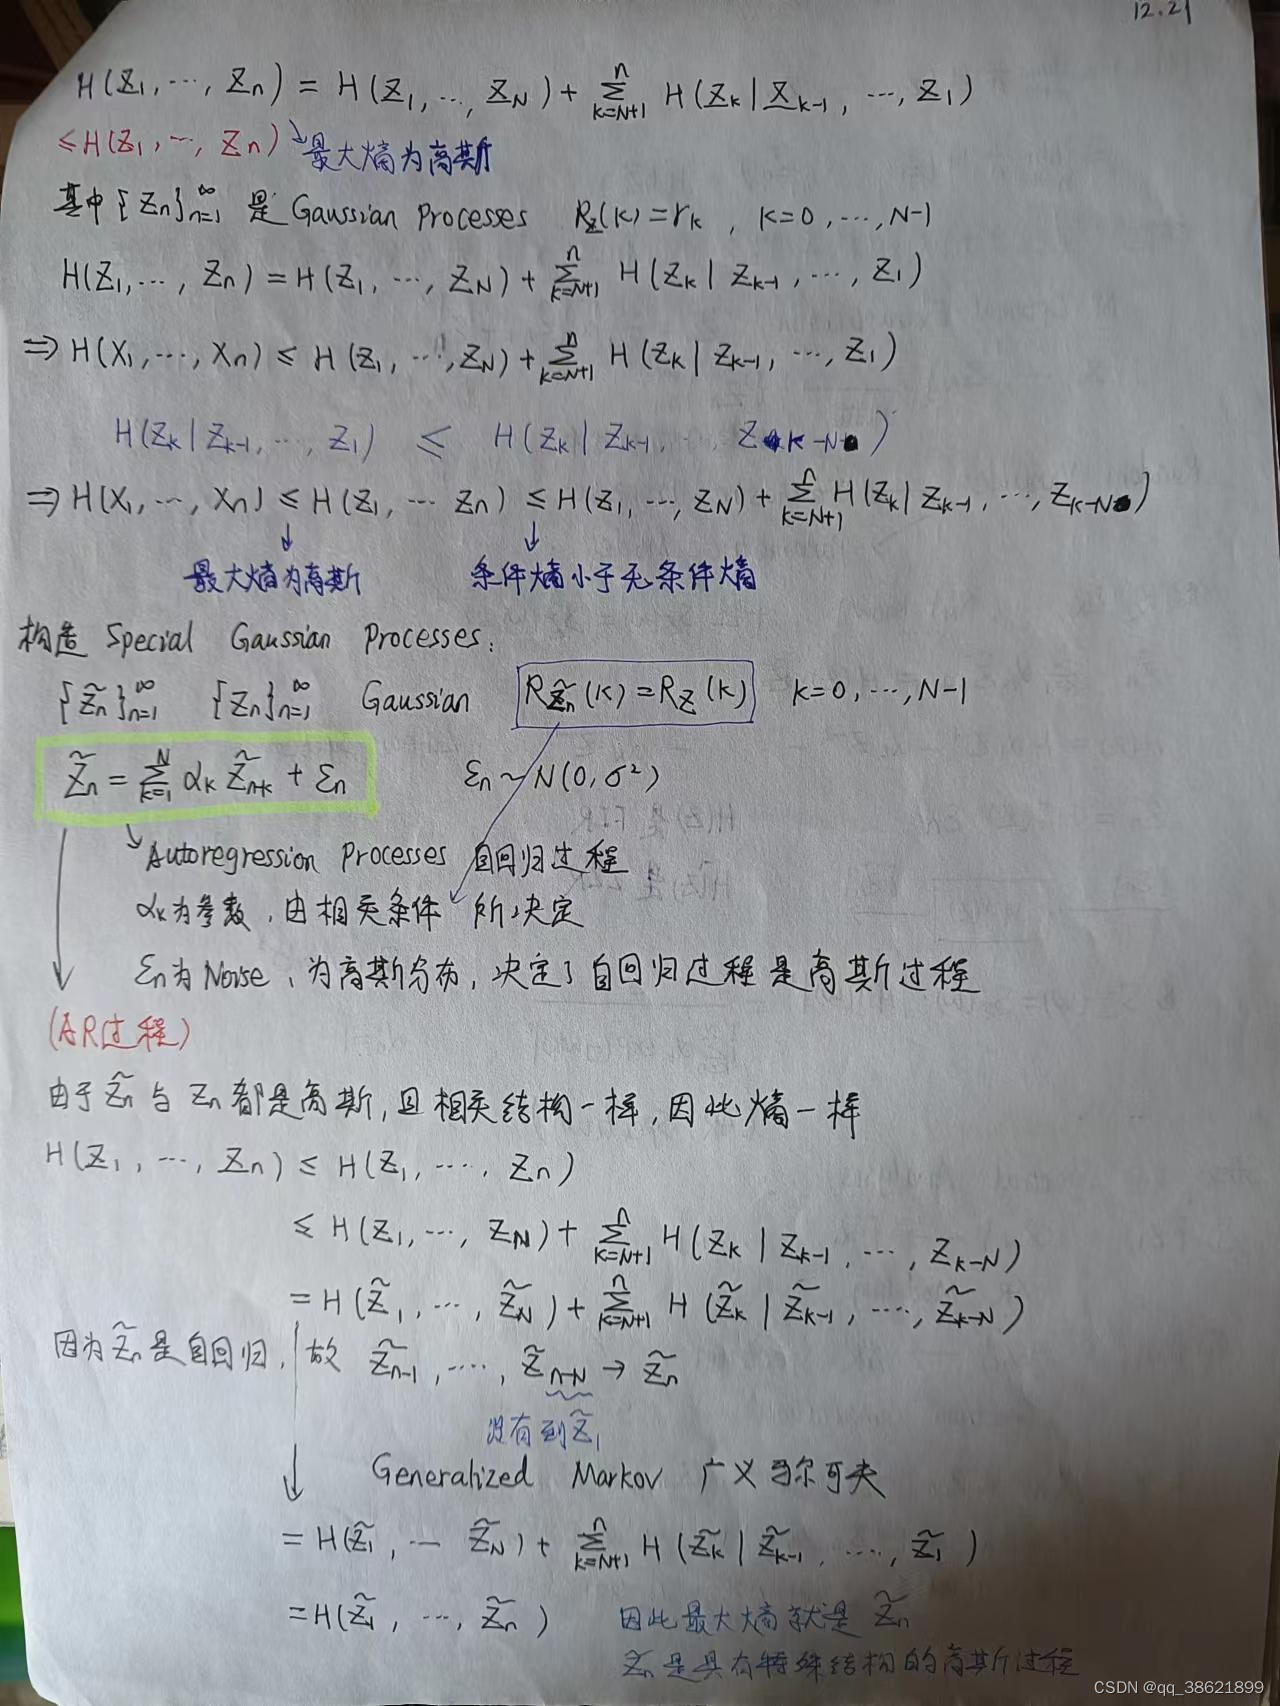 12.21
H(Z₁, ⋯, Zn) = H(Z₁, ⋯, Z_N) + Σ_{k=N+1}^{n} H(Z_k | X_{k-1}, ⋯, Z₁)
≤ H(Z₁, ⋯, Zn) ↘ 最大熵为高斯
其中 {Zn}_{n=1}^{∞} 是 Gaussian Processes R_Z(k) = r_k, k=0, ⋯, N-1
H(Z₁, ⋯, Zn) = H(Z₁, ⋯, Z_N) + Σ_{k=N+1}^{n} H(Z_k | Z_{k-1}, ⋯, Z₁)
⇒ H(X₁, ⋯, Xn) ≤ H(Z₁, ⋯, Z_N) + Σ_{k=N+1}^{n} H(Z_k | Z_{k-1}, ⋯, Z₁)
H(Z_k | Z_{k-1}, ⋯, Z₁) ≤ H(Z_k | Z_{k-1}, ⋯ Z_{k-N})
⇒ H(X₁, ⋯, Xn) ≤ H(Z₁, ⋯ Zn) ≤ H(Z₁, ⋯, Z_N) + Σ_{k=N+1}^{n} H(Z_k | Z_{k-1}, ⋯, Z_{k-N})
最大熵为高斯 条件熵小于无条件熵
构造 Special Gaussian Processes:
{Z̃n}_{n=1}^{∞} {Zn}_{n=1}^{∞} Gaussian R_{Z̃n}(k) = R_Z(k) k=0, ⋯, N-1
Z̃n = Σ_{k=1}^{N} α_k Z̃_{n-k} + εn εn ~ N(0, σ²)
Autoregression Processes 自回归过程
α_k为参数, 由相关条件 所决定
εn为Noise, 为高斯分布, 决定了自回归过程是高斯过程
(AR过程)
由于 Z̃n 与 Zn 都是高斯, 且相关结构一样, 因此熵一样
H(Z₁, ⋯, Zn) ≤ H(Z₁, ⋯, Zn)
≤ H(Z₁, ⋯, Z_N) + Σ_{k=N+1}^{n} H(Z_k | Z_{k-1}, ⋯, Z_{k-N})
= H(Z̃₁, ⋯, Z̃_N) + Σ_{k=N+1}^{n} H(Z̃_k | Z̃_{k-1}, ⋯, Z̃_{k-N})
因为 Z̃n 是自回归, 故 Z̃_{n-1}, ⋯, Z̃_{n-N} → Z̃n
没有到 Z̃₁
Generalized Markov 广义马尔可夫
= H(Z̃₁, ⋯ Z̃_N) + Σ_{k=N+1}^{n} H(Z̃_k | Z̃_{k-1}, ⋯, Z̃₁)
= H(Z̃₁, ⋯, Z̃n) 因此最大熵就是 Z̃n
Z̃n 是具有特殊结构的高斯过程
CSDN @qq_38621899